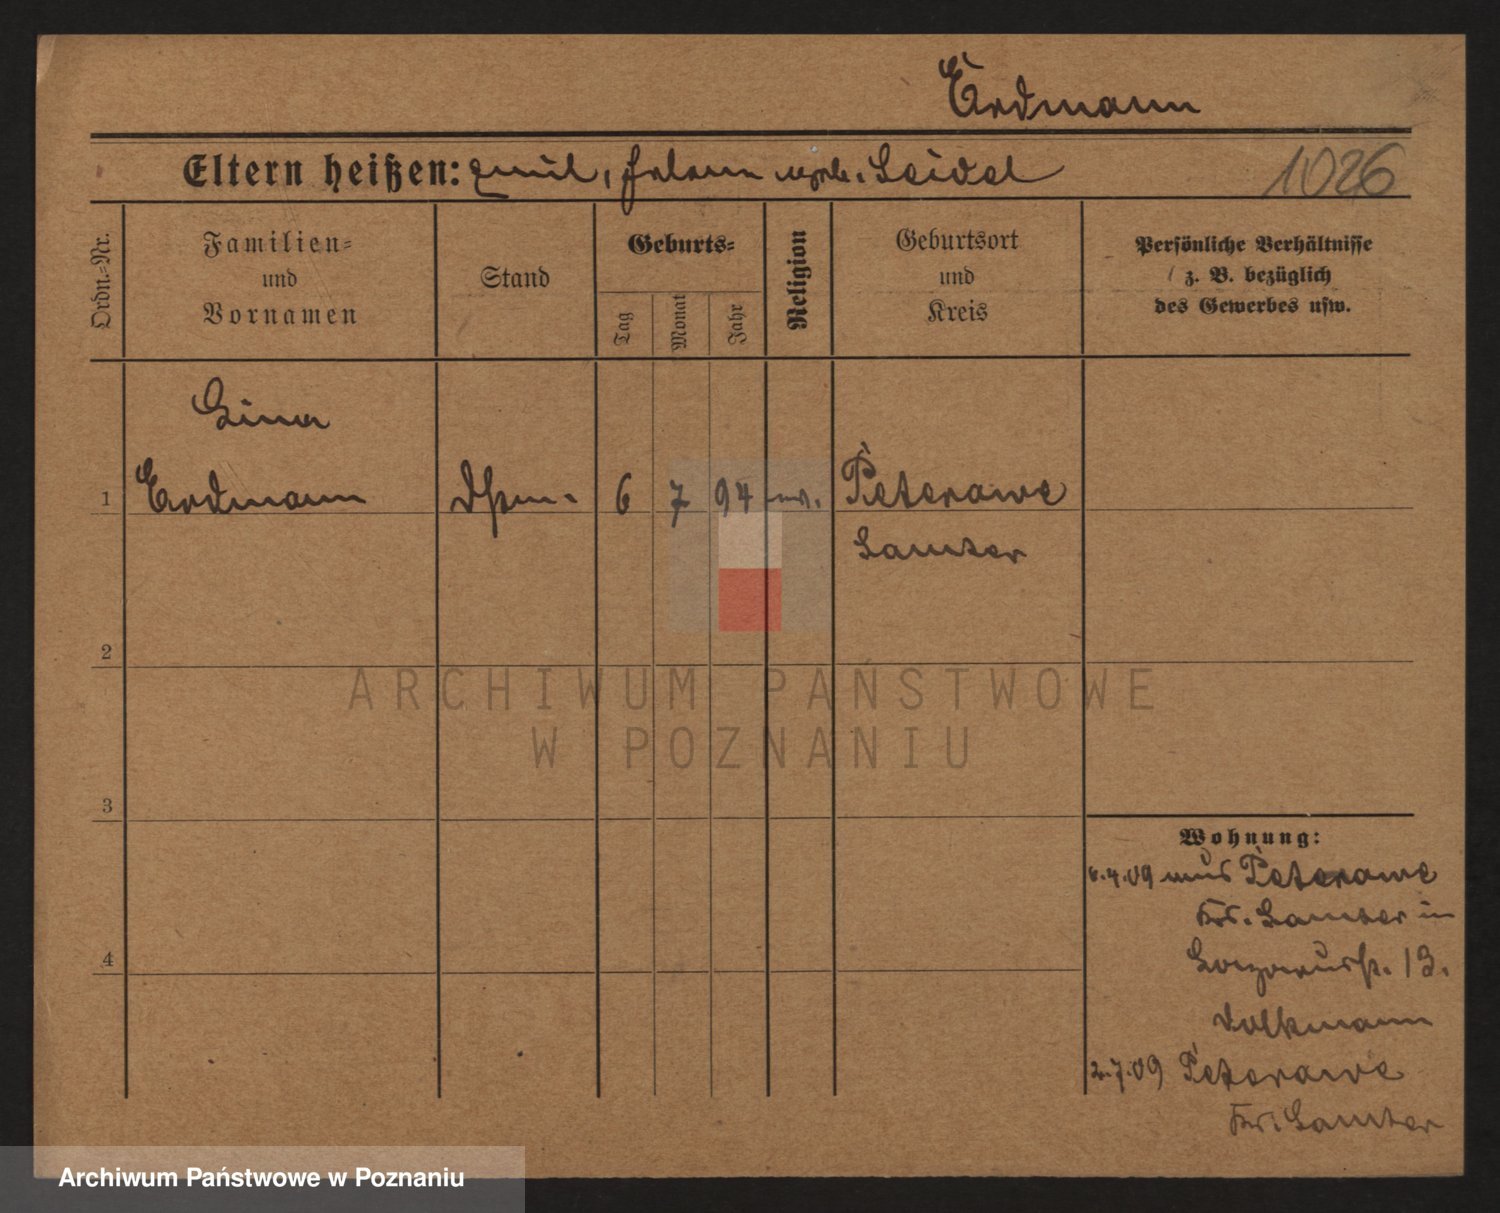 Erdmann
Eltern heißen: Emil, Helene geb. Seidel
1026
Ordn.=Nr.
Familien=
und
Vornamen
Stand
Geburts=
Tag
Monat
Jahr
Religion
Geburtsort
und
Kreis
Persönliche Verhältnisse
z. B. bezüglich
des Gewerbes usw.
Lina
1 Erdmann 6 7 94 ev. Peterawe
Samter
2
3
4
Wohnung:
6.4.09 aus Peterawe
Kr. Samter in
13.
Volkmann
2.7.09 Peterawe
Kr. Samter
ARCHIWUM PAŃSTWOWE
W POZNANIU
Archiwum Państwowe w Poznaniu